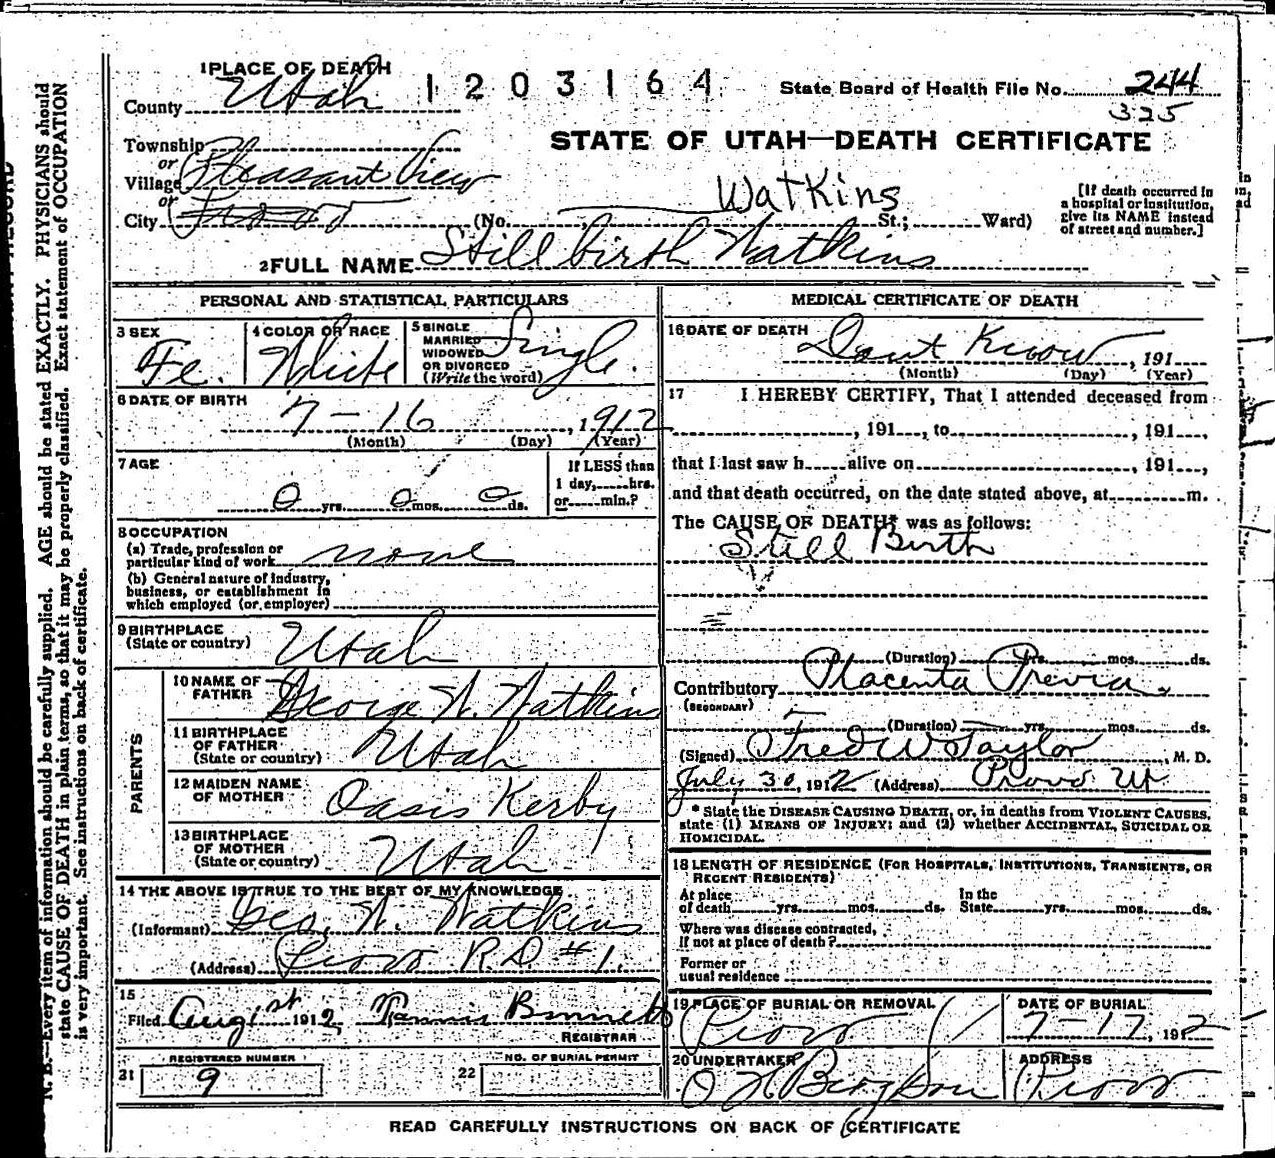 1 PLACE OF DEATH
1203164
State Board of Health File No. 244
325
County Utah
STATE OF UTAH—DEATH CERTIFICATE
Township
or
Village Pleasant View
or
City Provo (No. St.; Ward)
Watkins
[If death occurred in
a hospital or institution,
give its NAME instead
of street and number.]
2 FULL NAME Still birth Watkins
PERSONAL AND STATISTICAL PARTICULARS
3 SEX Fe.
4 COLOR OR RACE White
5 SINGLE
MARRIED
WIDOWED
OR DIVORCED
(Write the word) Single.
6 DATE OF BIRTH
7-16, 1912
(Month) (Day) (Year)
7 AGE
0 yrs. 0 mos. 0 ds.
If LESS than
1 day, hrs.
or min.?
8 OCCUPATION
(a) Trade, profession or
particular kind of work none
(b) General nature of industry,
business, or establishment in
which employed (or employer)
9 BIRTHPLACE
(State or country) Utah
PARENTS
10 NAME OF
FATHER George W. Watkins
11 BIRTHPLACE
OF FATHER
(State or country) Utah
12 MAIDEN NAME
OF MOTHER Oasis Kerby
13 BIRTHPLACE
OF MOTHER
(State or country) Utah
14 THE ABOVE IS TRUE TO THE BEST OF MY KNOWLEDGE
(Informant) Geo. W. Watkins
(Address) Provo R.D #1.
15
Filed Aug 1st 1912, Bennett
REGISTRAR
REGISTERED NUMBER
21 9
NO. OF BURIAL PERMIT
22
MEDICAL CERTIFICATE OF DEATH
16 DATE OF DEATH
Dont Know, 191
(Month) (Day) (Year)
17 I HEREBY CERTIFY, That I attended deceased from
, 191 , to , 191 ,
that I last saw h alive on , 191 ,
and that death occurred, on the date stated above, at m.
The CAUSE OF DEATH* was as follows:
Still Birth
(Duration) yrs. mos. ds.
Contributory Placenta Previa.
(SECONDARY)
(Duration) yrs. mos. ds.
(Signed) Fred W Taylor, M. D.
July 30, 1912 (Address) Provo Ut
* State the DISEASE CAUSING DEATH, or, in deaths from VIOLENT CAUSES,
state (1) MEANS OF INJURY; and (2) whether ACCIDENTAL, SUICIDAL OR
HOMICIDAL.
18 LENGTH OF RESIDENCE (FOR HOSPITALS, INSTITUTIONS, TRANSIENTS, OR
RECENT RESIDENTS)
At place
of death yrs. mos. ds.
In the
State yrs. mos. ds.
Where was disease contracted,
if not at place of death?
Former or
usual residence
19 PLACE OF BURIAL OR REMOVAL
Provo
DATE OF BURIAL
7-17, 1912
20 UNDERTAKER
ADDRESS
Provo
READ CAREFULLY INSTRUCTIONS ON BACK OF CERTIFICATE
N. B.—Every item of information should be carefully supplied. AGE should be stated EXACTLY. PHYSICIANS should
state CAUSE OF DEATH in plain terms, so that it may be properly classified. Exact statement of OCCUPATION
is very important. See instructions on back of certificate.